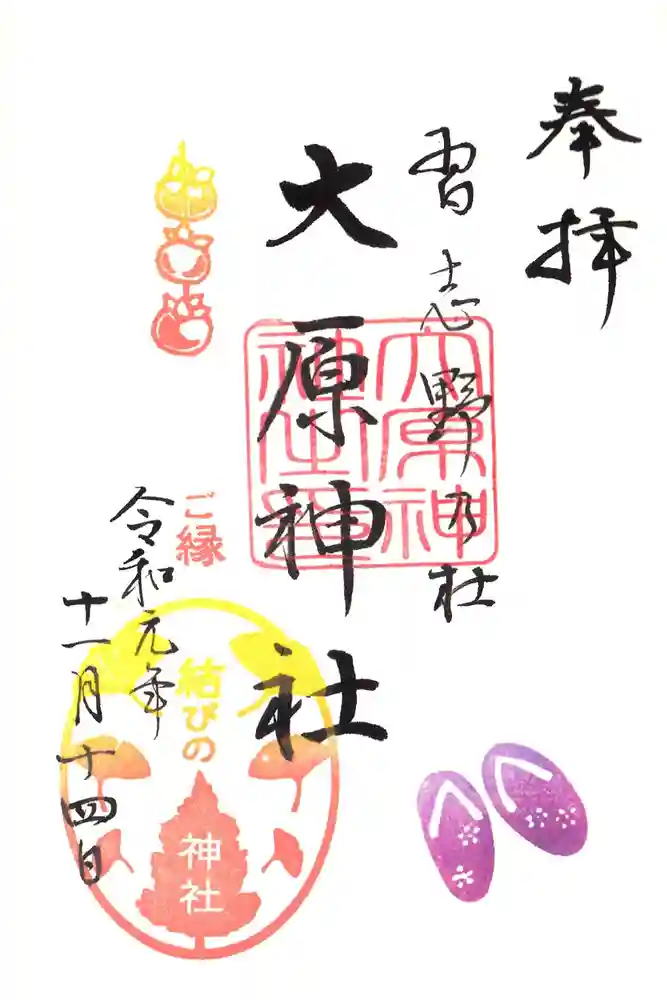 奉拝
習志野乃杜
大原神社
大原神社神璽
ご縁
結びの
神社
令和元年
十一月十四日